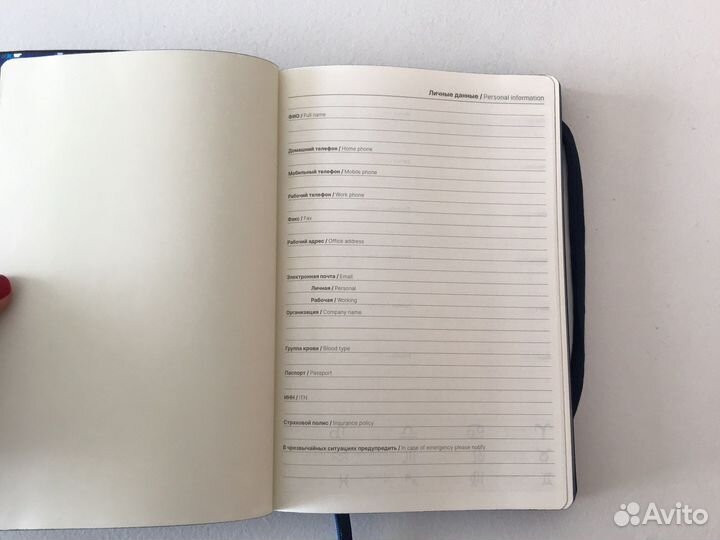 Личные данные / Personal information
ФИО / Full name
Домашний телефон / Home phone
Мобильный телефон / Mobile phone
Рабочий телефон / Work phone
Факс / Fax
Рабочий адрес / Office address
Электронная почта / Email
Личная / Personal
Рабочая / Working
Организация / Company name
Группа крови / Blood type
Паспорт / Passport
ИНН / ITN
Страховой полис / Insurance policy
В чрезвычайных ситуациях предупредить / In case of emergency please notify
Avito